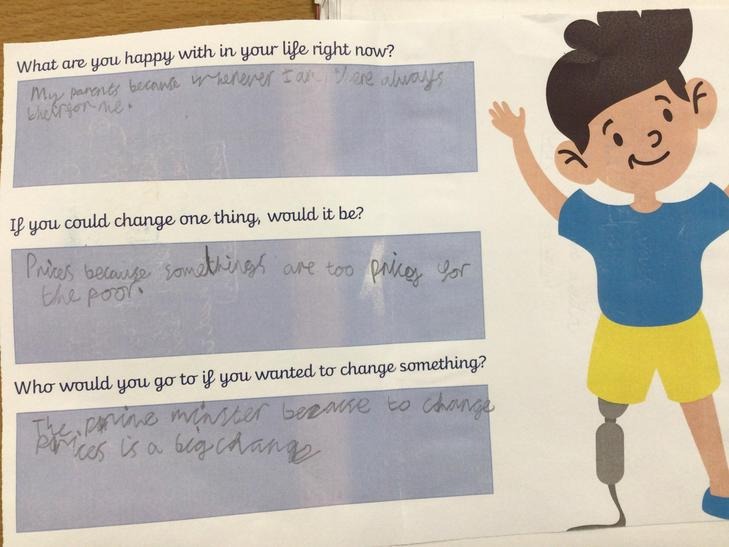 What are you happy with in your life right now?
My parents because whenever I am there always
there for me.
If you could change one thing, would it be?
Prices because somethings are too pricey for
the poor.
Who would you go to if you wanted to change something?
The prime minster because to change
prices is a big change